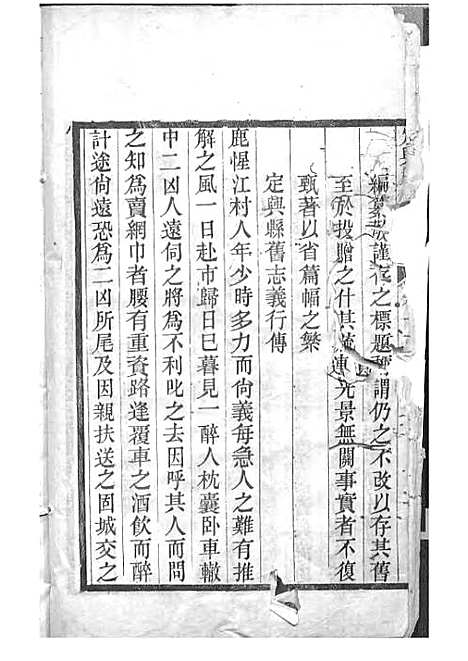 編纂
謹存之標題稱謂仍之不改以存其舊
至於投贈之什其流連光景無關事實者不復
甄著以省篇幅之繁
定興縣舊志義行傳
鹿惺江村人年少時多力而尙義每急人之難有推
解之風一日赴市歸日已暮見一醉人枕囊卧車轍
中二凶人遠伺之將爲不利叱之去因呼其人而問
之知爲賣網巾者腰有重資路逢覆車之酒飮而醉
計途尙遠恐爲二凶所尾及因親扶送之固城交之